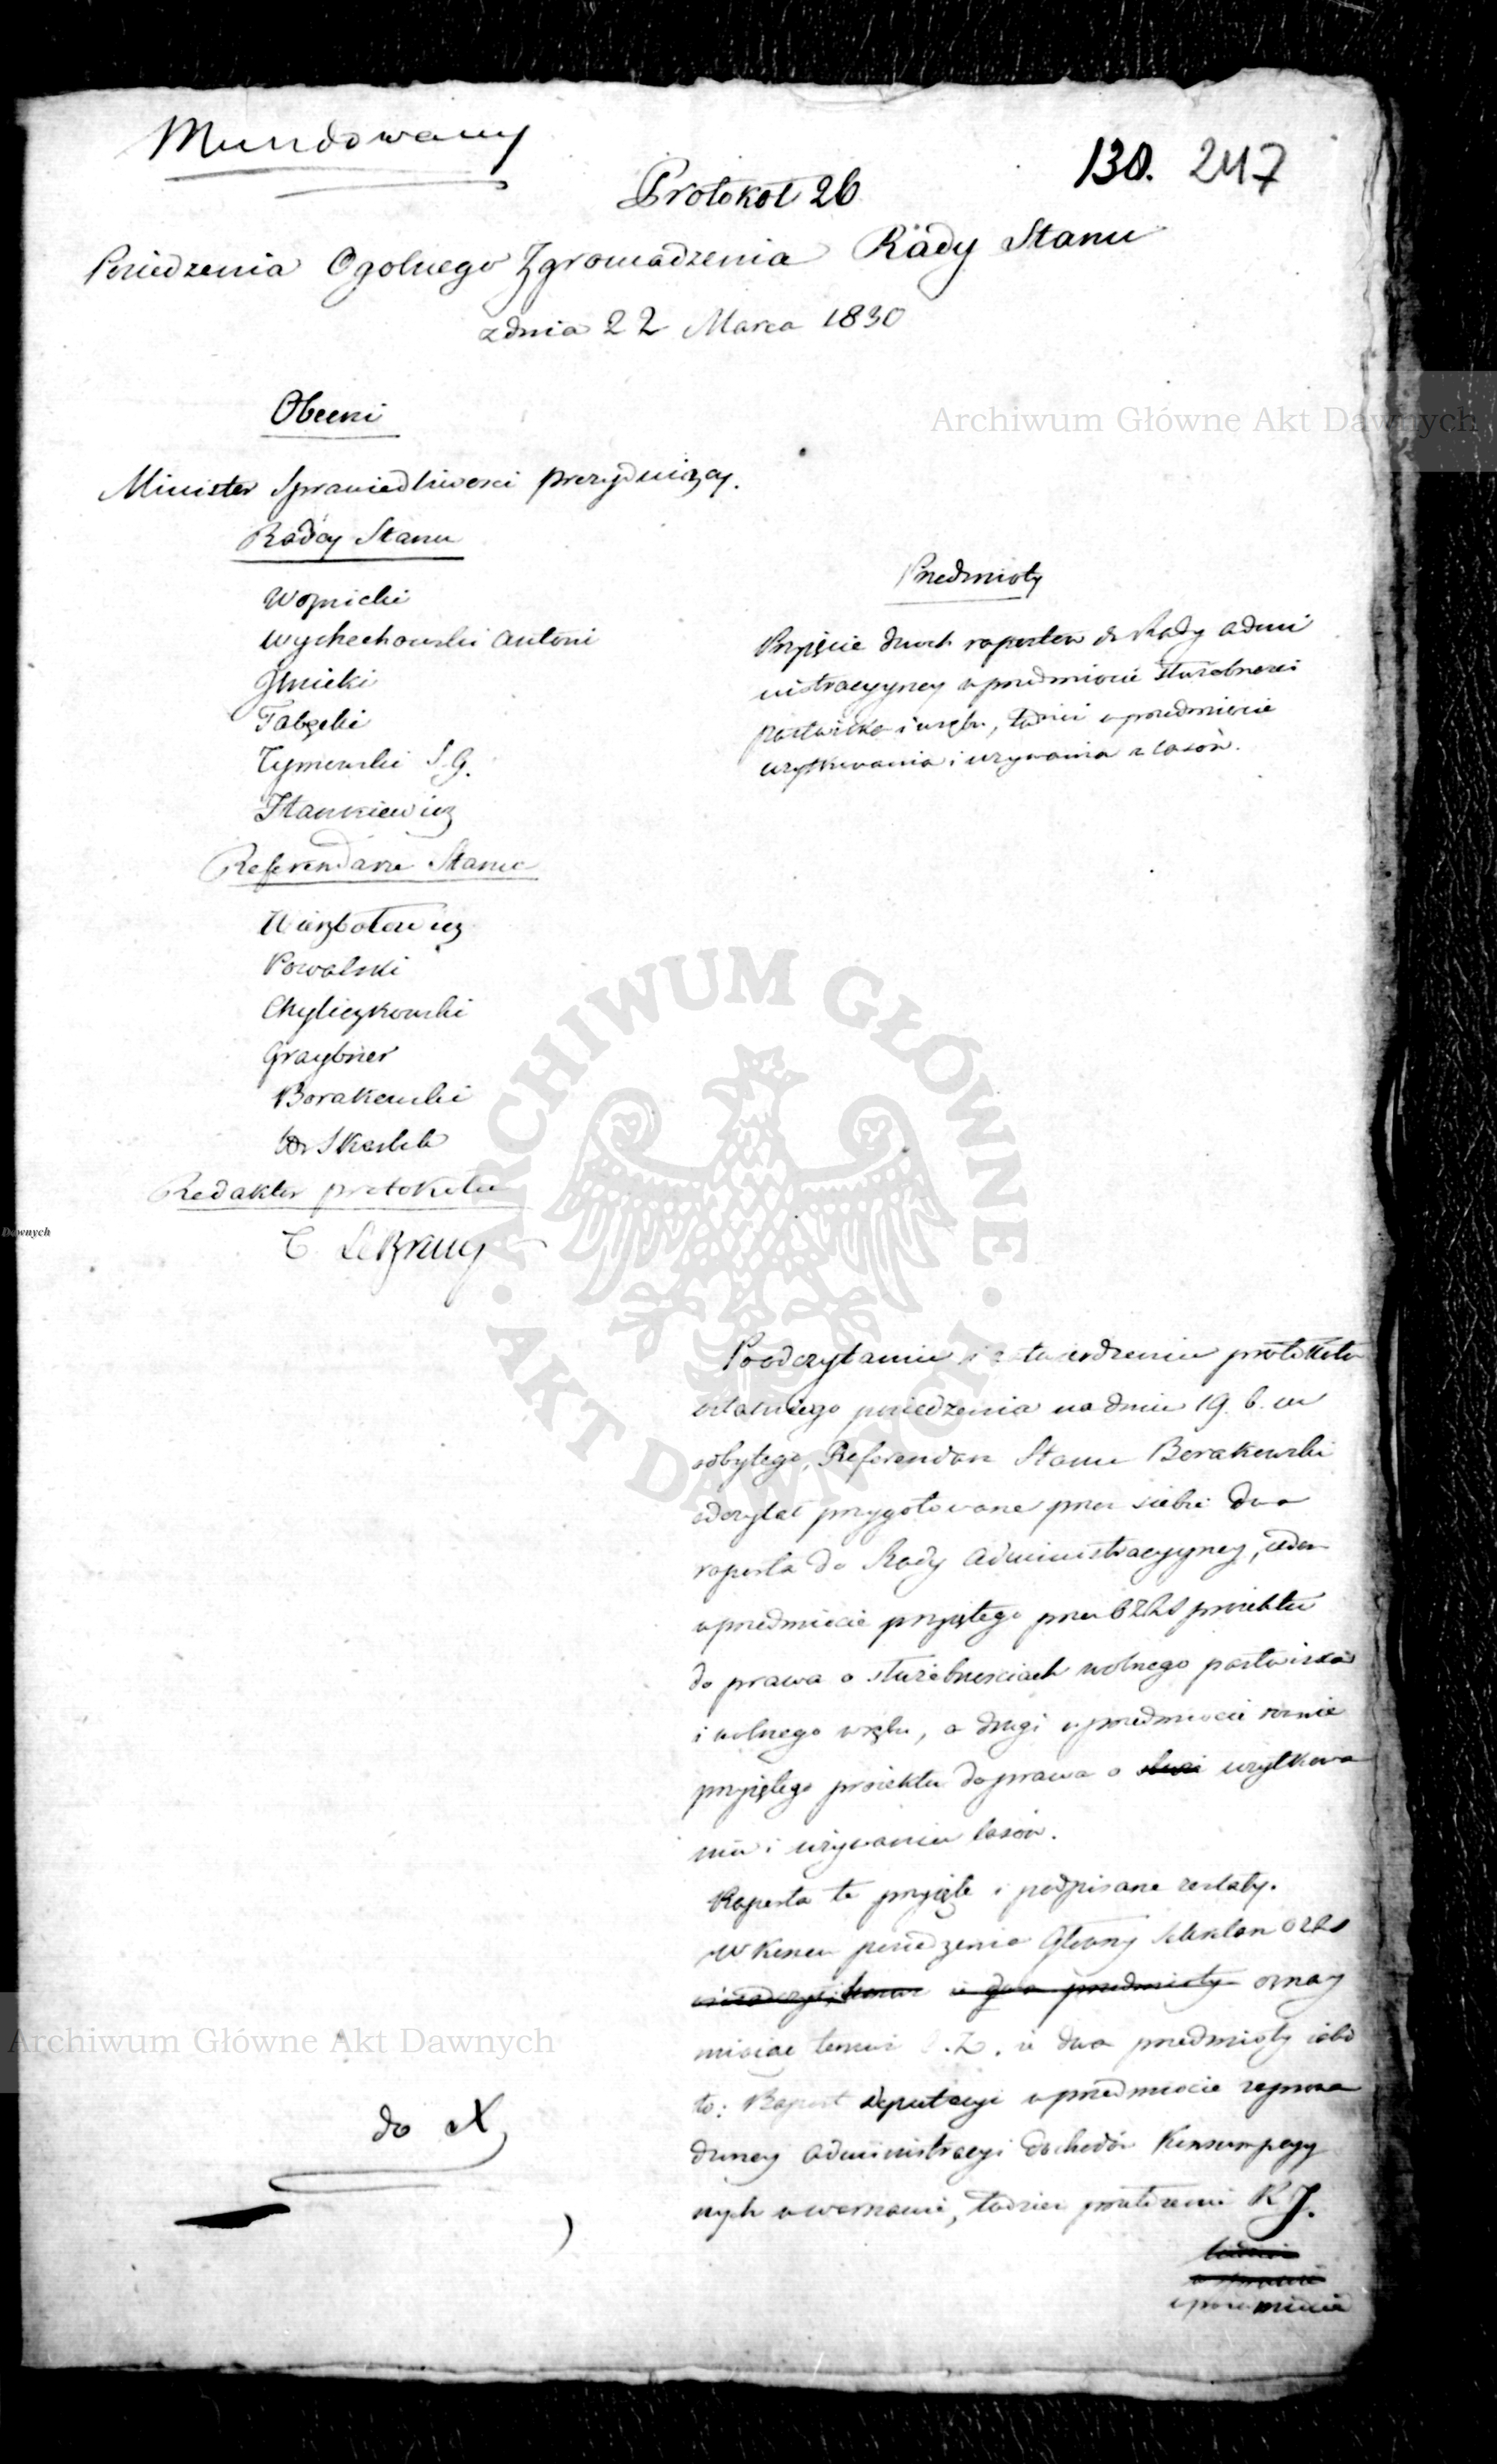 Mundowany
130. 247
Protokoł 26
Posiedzenia Ogolnego Zgromadzenia Rady Stanu
z dnia 22 Marca 1830
Obecni
Archiwum Główne Akt Dawnych
Minister Sprawiedliwosci prezyduiący.
Radcy Stanu
Woznicki
Wyczechowski Antoni
Tymowski S. G.
Stankiewicz
Referendarze Stanu
Wierzbołowicz
Kowalski
Chyliczkowski
Graybner
Borakowski
Skarbek
Redaktor protokołu
Przedmioty
Przyięcie dwoch raportow do Rady Admi
nistracyyney w przedmiocie służebnosci
pastwiska i wrębu, tudzież w przedmiocie
uzytkowania i uzywania z lasów.
ARCHIWUM GŁÓWNE
AKT DAWNYCH
Dawnych
Po odczytaniu i zatwierdzeniu protokołu
ostatniego posiedzenia na dniu 19. b. m
odbytego, Referendarz Stanu Borakowski
odczytał przygotowane przez siebie dwa
raporta do Rady Administracyyney, ieden
w przedmiocie przyiętego przez OZRS proiektu
do prawa o służebnosciach wolnego pastwiska
i wolnego wrębu, a drugi w przedmiocie rownie
przyiętego proiektu do prawa o uzytkowa
niu i uzywaniu lasów.
Raporta te przyięte i podpisane zostały.
W koncu posiedzenia Głowny Sekretarz OZRS
i dwa przedmioty oznay
miaiąc temuż O. Z. iż dwa przedmioty iako
to: Raport Deputacyi w przedmiocie zaprowa
dzoney Administracyi dochodów Konsumpcyy
nych w Warszawie, tudzież przełozenie K J.
w przedmiocie
Archiwum Główne Akt Dawnych
do X